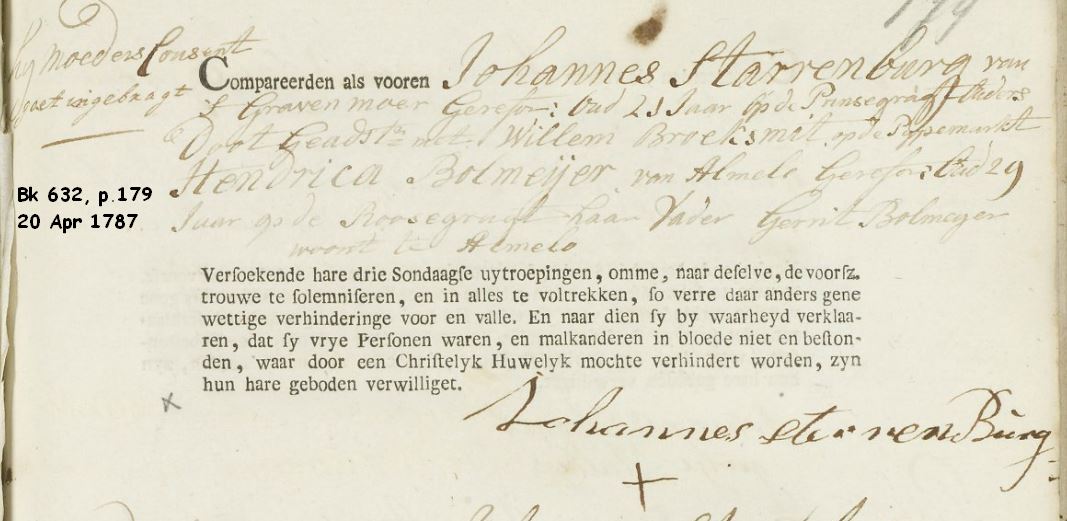 Moeders Consent
Compareerden als vooren Johannes Starrenburg van
goet ingebragt
's Gravenmoer Gerefor: Oud 25 Jaar op de Prinsegragt Ouders
Doot Geadst: met Willem Broeksmit op de
Hendrica Bolmeijer van Almelo Gerefor: Oud 29
Bk 632, p.179
20 Apr 1787
Jaar op de Roosegragt haar Vader Gerrit Bolmeyer
woont te Almelo
Versoekende hare drie Sondaagse uytroepingen, omme, naar deselve, de voorsz.
trouwe te solemniseren, en in alles te voltrekken, so verre daar anders gene
wettige verhinderinge voor en valle. En naar dien sy by waarheyd verklaa-
ren, dat sy vrye Personen waren, en malkanderen in bloede niet en beston-
den, waar door een Christelyk Huwelyk mochte verhindert worden, zyn
hun hare geboden verwilliget.
x
Johannes sterrenBurg
+